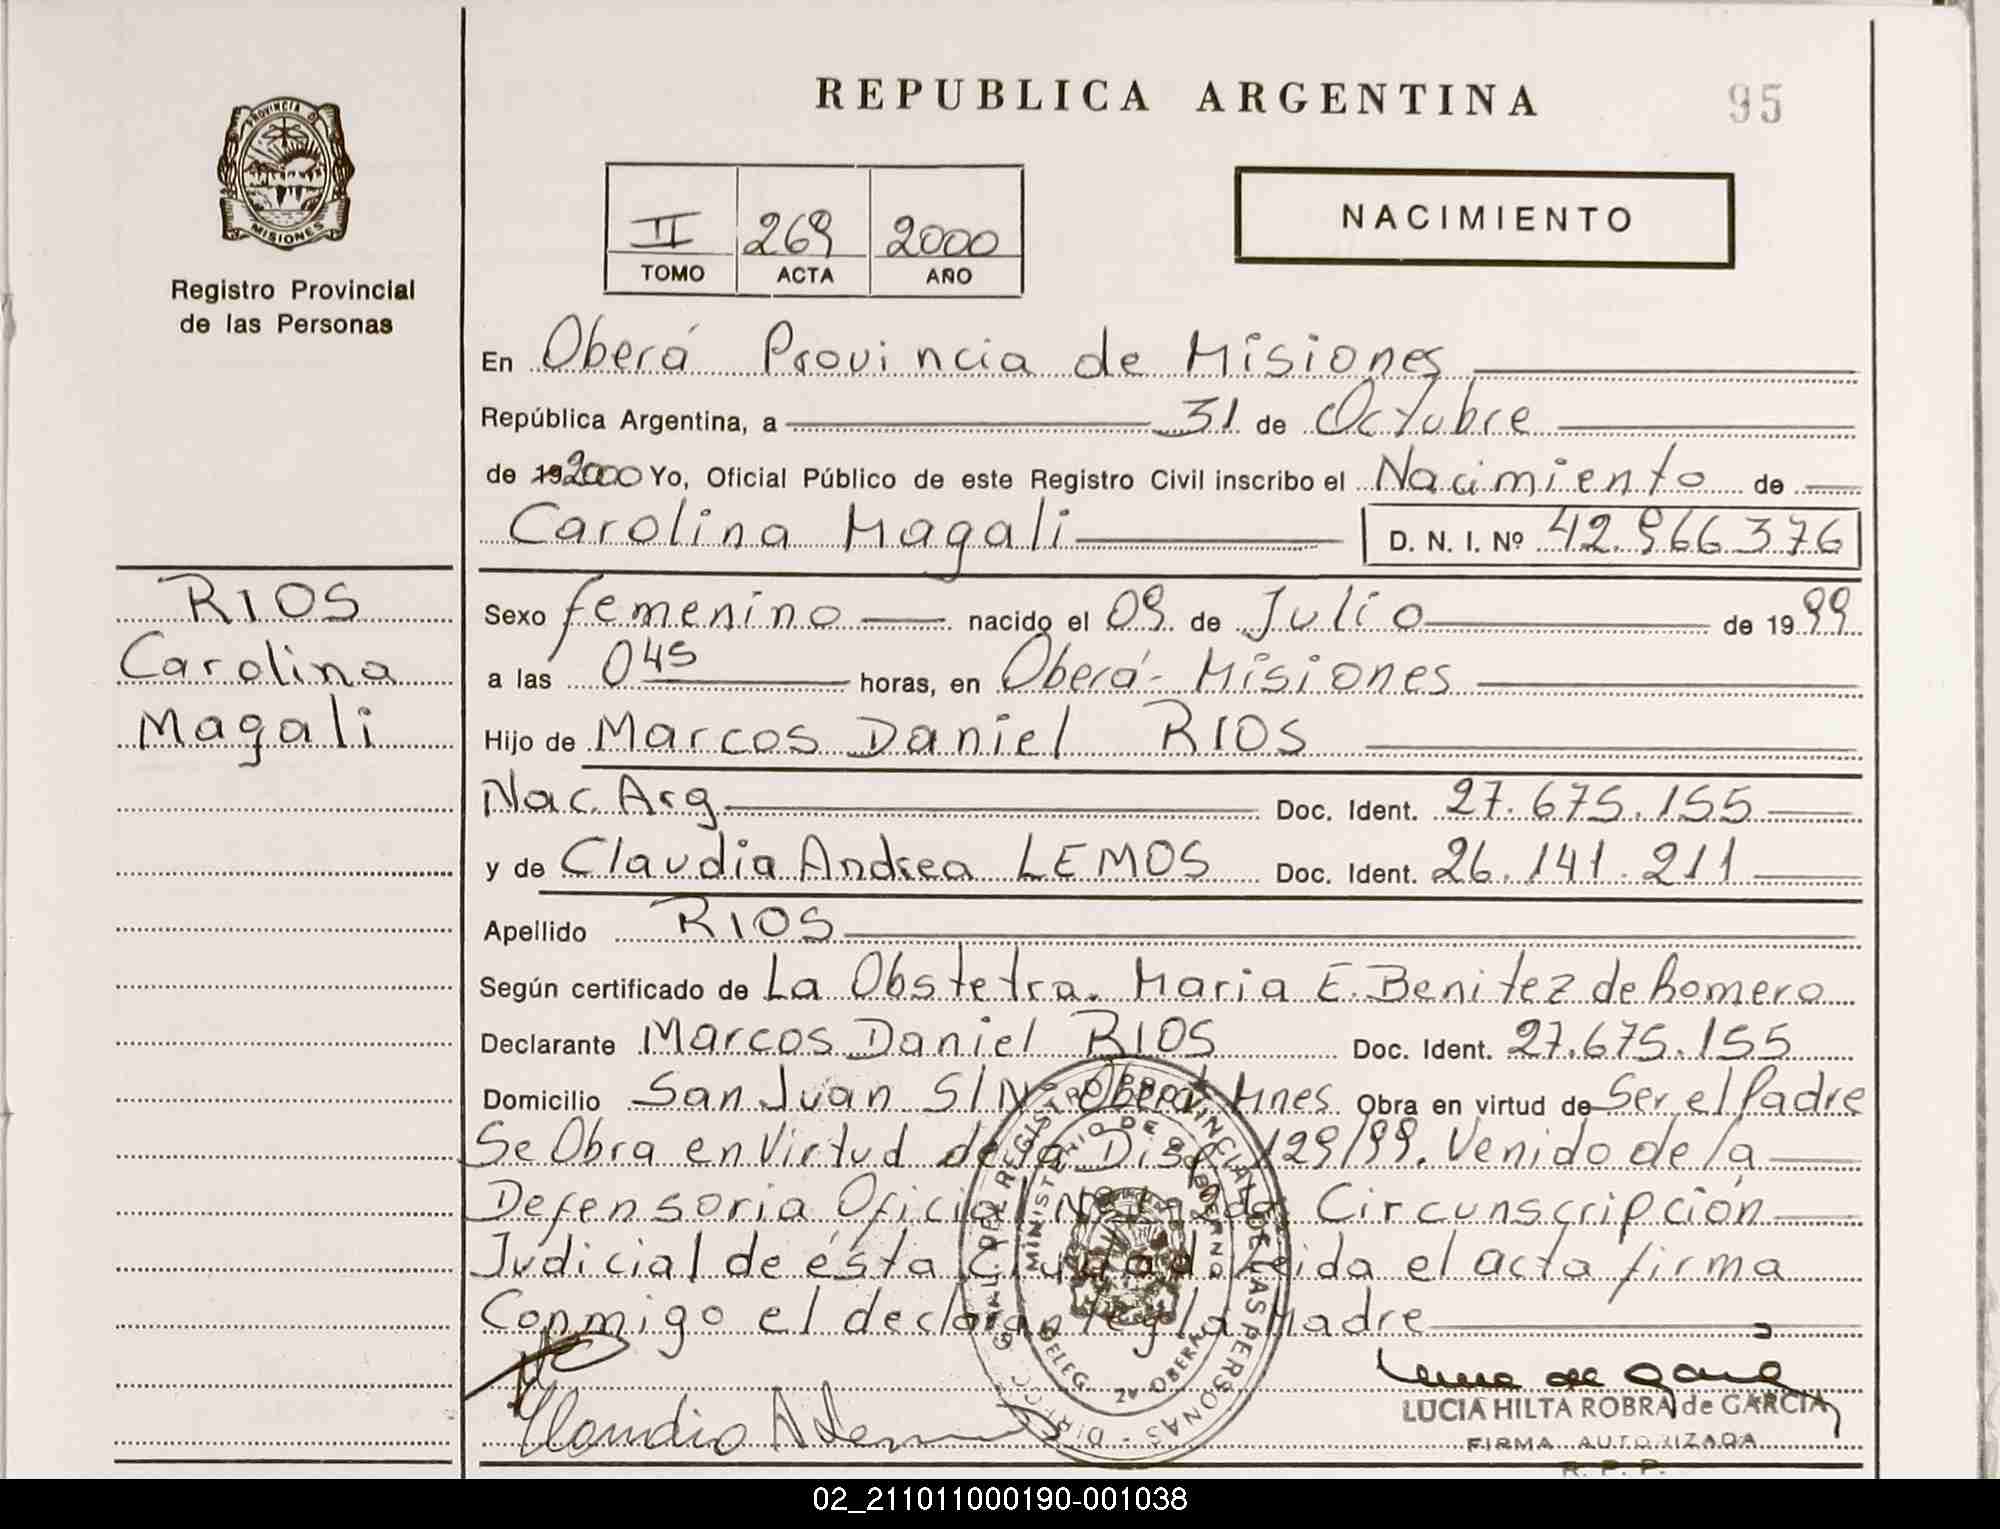 REPUBLICA ARGENTINA
95
PROVINCIA DE
MISIONES
Registro Provincial
de las Personas
II 269 2000
TOMO ACTA AÑO
NACIMIENTO
En Oberá Provincia de Misiones
República Argentina, a 31 de Octubre
de 192000 Yo, Oficial Público de este Registro Civil inscribo el Nacimiento de
Carolina Magali D. N. I. Nº 42.966376
RIOS
Carolina
Magali
Sexo femenino nacido el 09 de Julio de 1999
a las 045 horas, en Oberá- Misiones
Hijo de Marcos Daniel RIOS
Nac. Arg Doc. Ident. 27.675.155
y de Claudia Andrea LEMOS Doc. Ident. 26.141.211
Apellido RIOS
Según certificado de La Obstetra. Maria E. Benitez de Romero
Declarante Marcos Daniel RIOS Doc. Ident. 27.675.155
Domicilio San Juan S/Nº Oberá Mnes. Obra en virtud de Ser el Padre
Se Obra en Virtud de la Disp. 129/99. Venido de la
Defensoria Oficial Nº Circunscripción
Judicial de ésta Ciudad. Leida el acta firma
Conmigo el declarante y la Madre
REGISTRO PROVINCIAL DE LAS PERSONAS - DIRECC. GRAL. DEL
MINISTERIO DE GOBIERNO
DELEG. 2ª OBERA
LUCIA HILTA ROBRA de GARCIA
FIRMA AUTORIZADA
R. P. P.
02_211011000190-001038